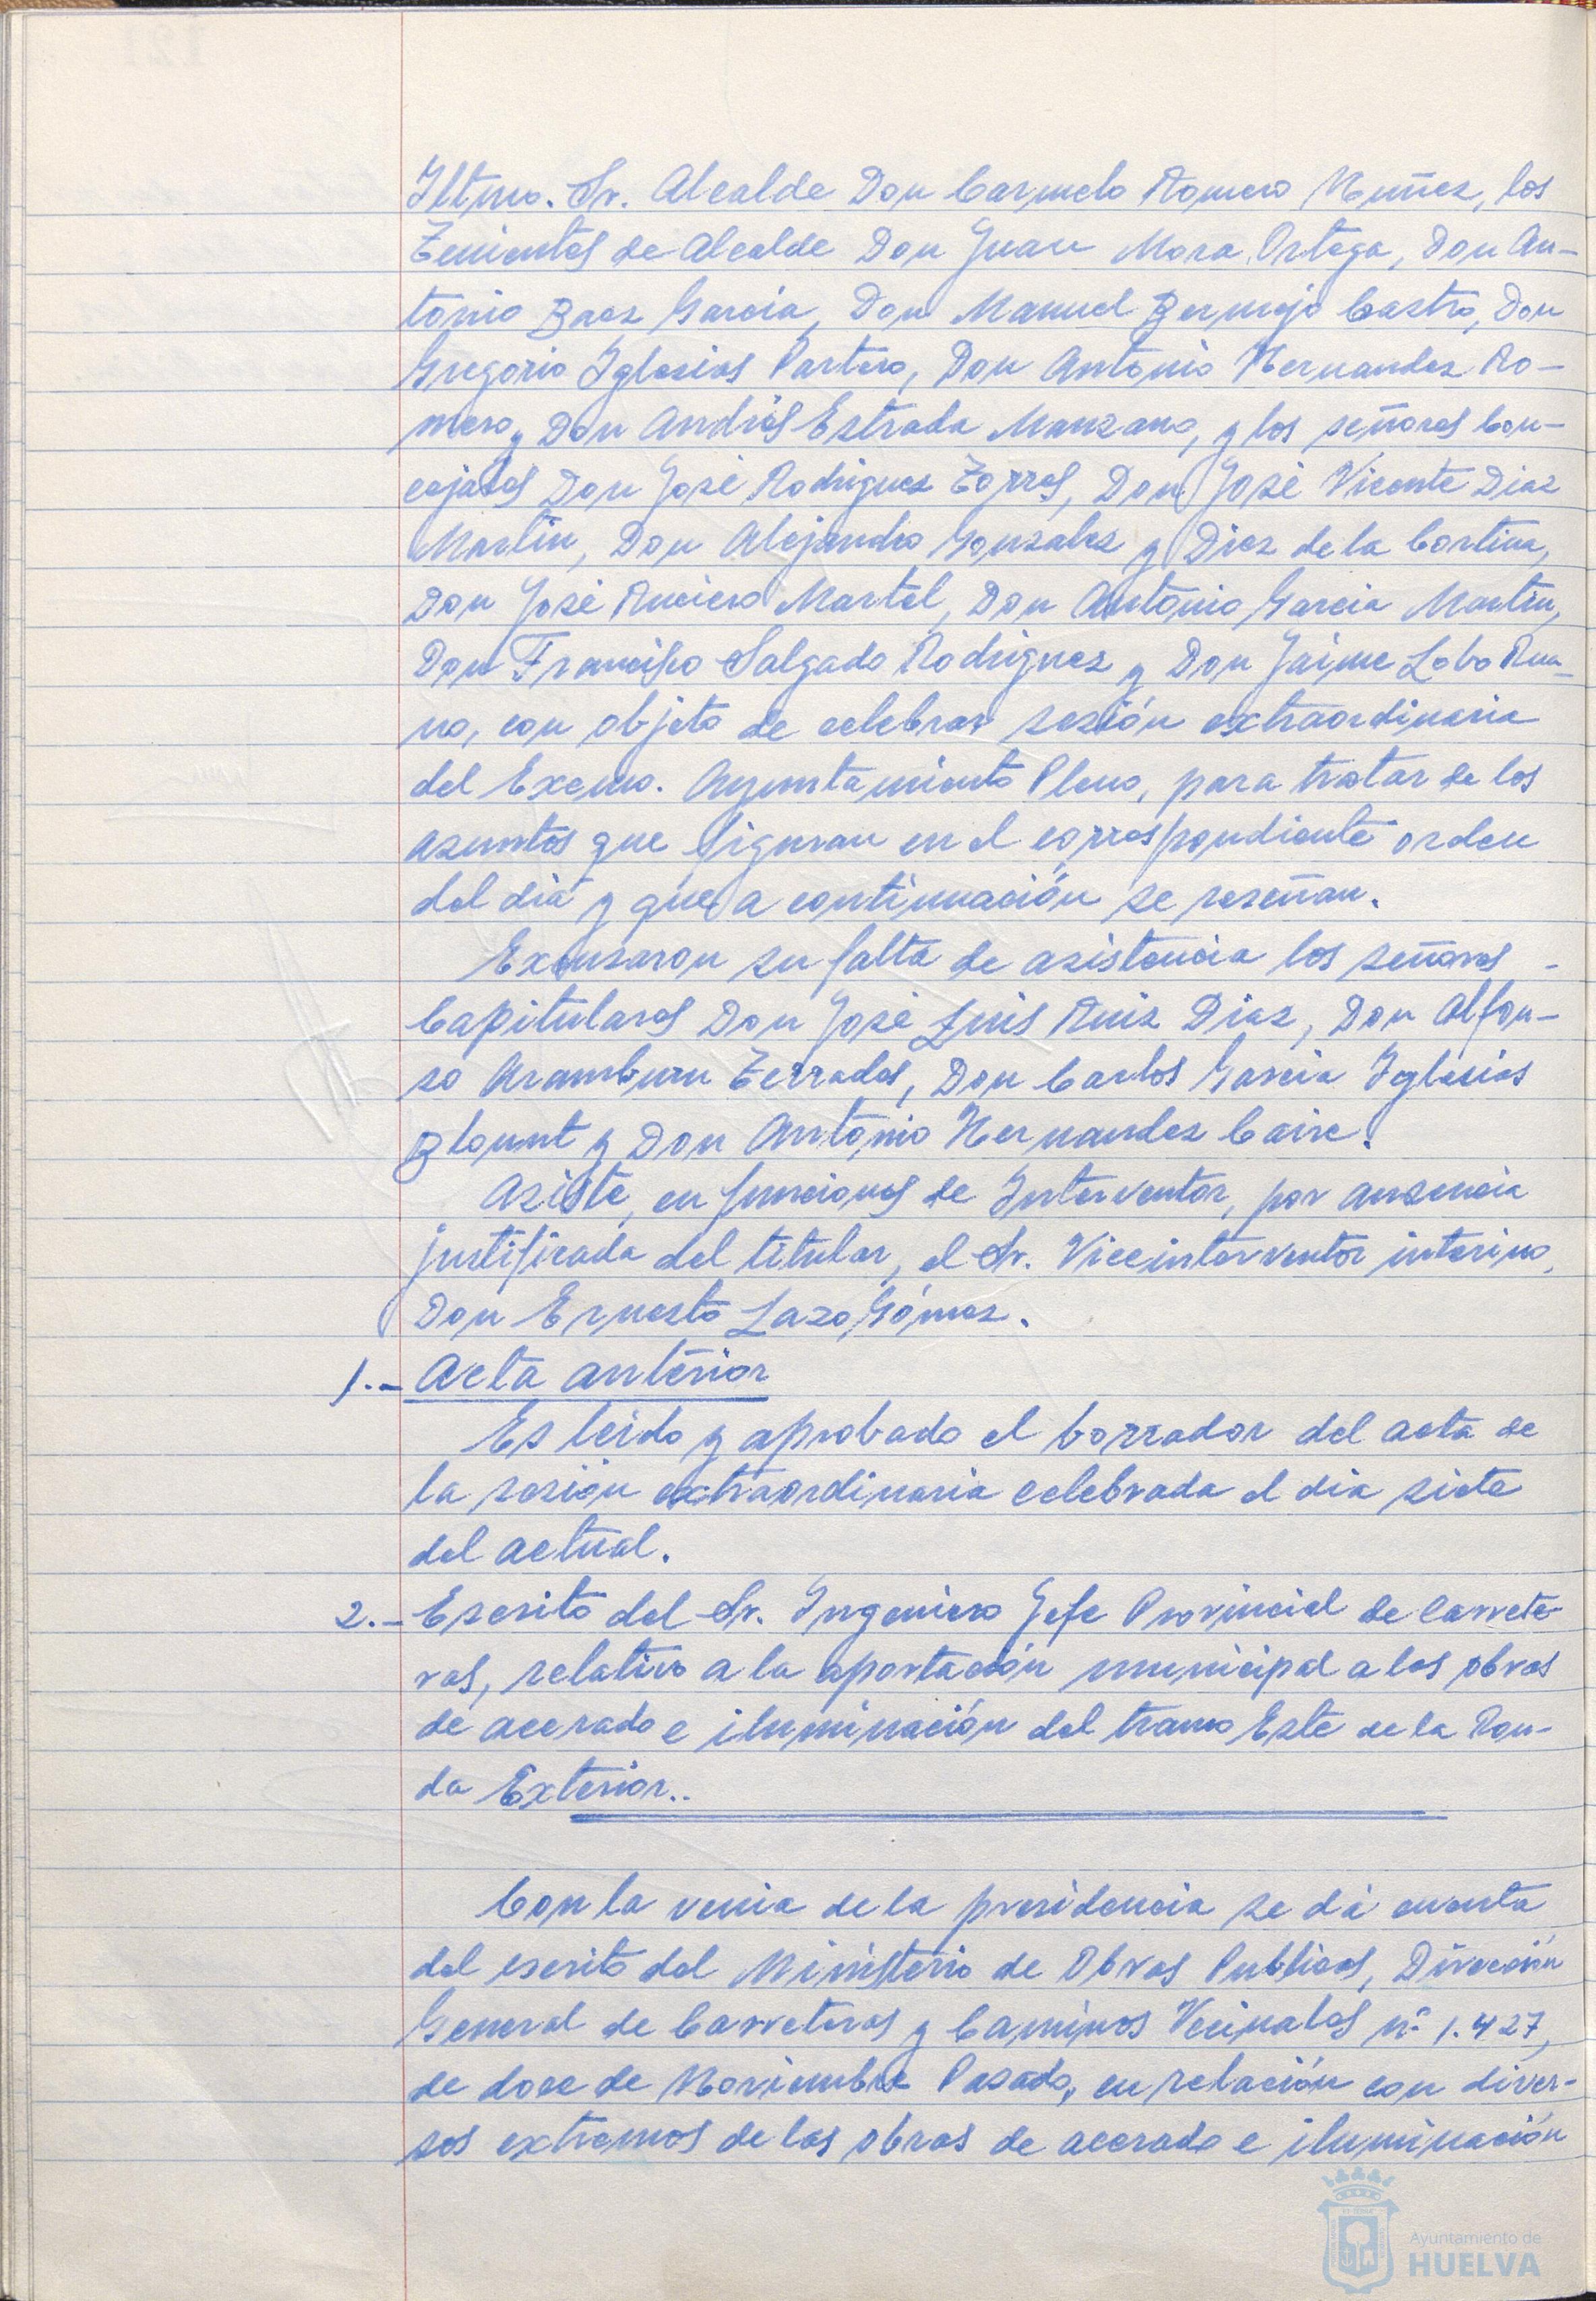 Iltmo. Sr. Alcalde Don Carmelo Romero Nuñez, los
Tenientes de Alcalde Don Juan Mora Ortega, Don An-
tonio Baez Garcia, Don Manuel Bermejo Castro, Don
Gregorio Iglesias Partero, Don Antonio Hernandez Ro-
mero y Don Andrés Estrada Manzano, y los señores Con-
cejales Don José Rodriguez Torres, Don José Vicente Diaz
Martin, Don Alejandro Gonzalez y Diez de la Cortina,
Don José Ruciero Martel, Don Antonio Garcia Martin,
Don Francisco Salgado Rodriguez y Don Jaime Lobo Rua-
no, con objeto de celebrar sesión extraordinaria
del Excmo. Ayuntamiento Pleno, para tratar de los
asuntos que figuran en el correspondiente orden
del dia y que a continuación se reseñan.
Excusaron su falta de asistencia los señores -
Capitulares Don José Luis Ruiz Diaz, Don Alfon-
so Aramburu Terrades, Don Carlos Garcia Iglesias
Blount y Don Antonio Hernandez Caire.
Asiste, en funciones de Interventor, por ausencia
justificada del titular, el Sr. Viceinterventor interino,
Don Ernesto Lazo Gómez.
1.- Acta anterior
Es leido y aprobado el borrador del acta de
la sesión extraordinaria celebrada el dia siete
del actual.
2.- Escrito del Sr. Ingeniero Jefe Provincial de Carrete-
ras, relativo a la aportación municipal a las obras
de acerado e iluminación del tramo Este de la Ron-
da Exterior..
Con la venia de la presidencia se dá cuenta
del escrito del Ministerio de Obras Publicas, Dirección
General de Carreteras y Caminos Vecinales nº 1.427,
de doce de Noviembre Pasado, en relación con diver-
sos extremos de las obras de acerado e iluminación
Ayuntamiento de
HUELVA